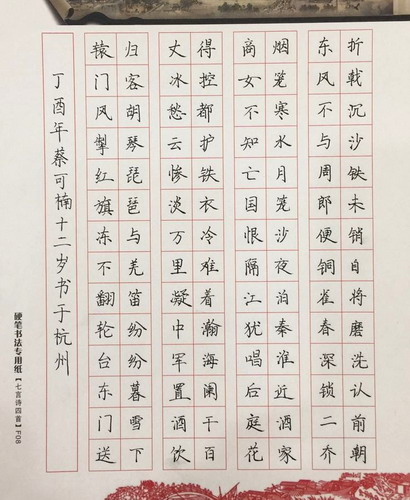 折戟沉沙铁未销自将磨洗认前朝
东风不与周郎便铜雀春深锁二乔
烟笼寒水月笼沙夜泊秦淮近酒家
商女不知亡国恨隔江犹唱后庭花
得控都护铁衣冷难着瀚海阑干百
丈冰愁云惨淡万里凝中军置酒饮
归客胡琴琵琶与羌笛纷纷暮雪下
辕门风掣红旗冻不翻轮台东门送
丁酉年蔡可楠十二岁书于杭州
硬笔书法专用纸【七言诗四首】F08